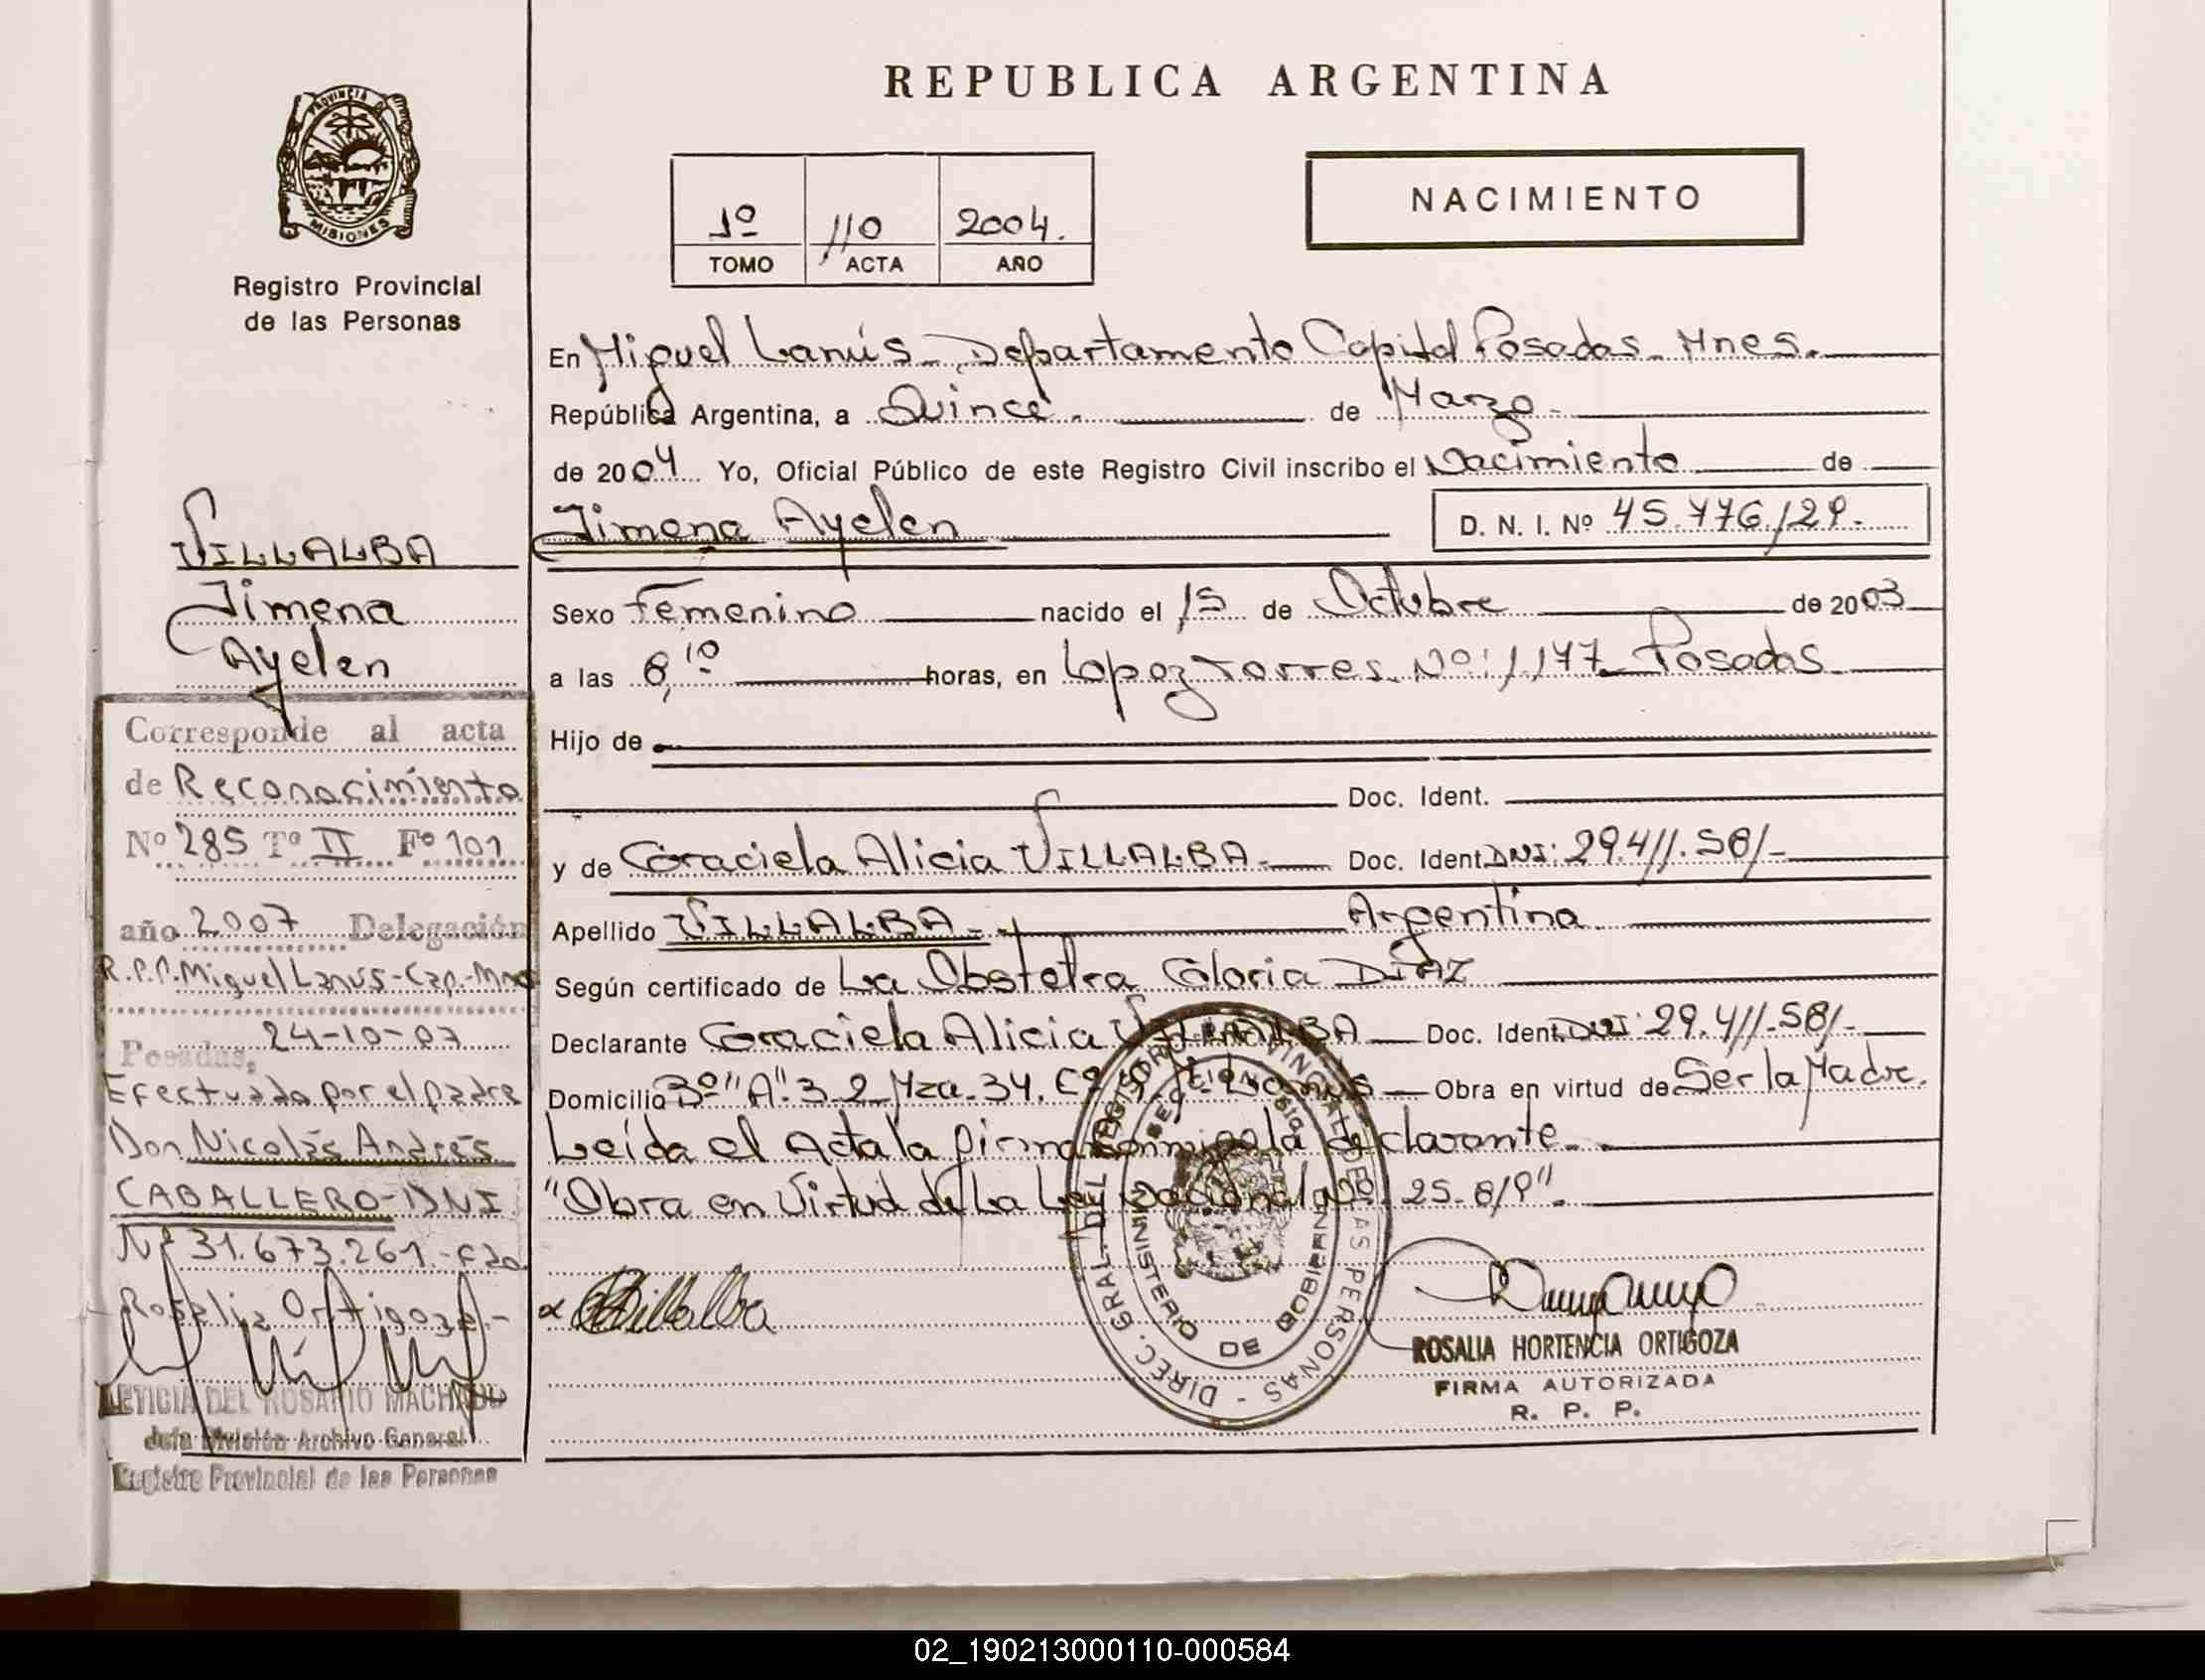 REPUBLICA ARGENTINA
PROVINCIA DE MISIONES
Registro Provincial
de las Personas
1º 110 2004.
TOMO ACTA AÑO
NACIMIENTO
En Miguel Lanús - Departamento Capital Posadas - Mnes.
República Argentina, a Quince. de Marzo -
de 2004 Yo, Oficial Público de este Registro Civil inscribo el Nacimiento de
Jimena Ayelen D. N. I. Nº 45.776.129.-
Sexo Femenino nacido el 15 de Octubre de 2003
a las 8,10 horas, en Lopez Torres Nº: 1.177 - Posadas
Hijo de
Doc. Ident.
y de Graciela Alicia VILLALBA - Doc. Ident. DNI: 29.411.581-
Apellido VILLALBA - Argentina
Según certificado de La Obstetra Gloria DIAZ
Declarante Graciela Alicia VILLALBA Doc. Ident. DNI: 29.411.581-
Domicilio 3º "A" 32 Mza. 34. Lanus Obra en virtud de Ser la Madre.
Leída el Acta la firma conmigo la declarante -
"Obra en Virtud de La Ley Nacional Nº 25.819".
VILLALBA
Jimena
Ayelen
Corresponde al acta
de Reconocimiento
Nº 285 Tº II Fº 101
año 2007 Delegación
R.P.P. Miguel Lanús - Cap. - Mnes
Posadas, 24-10-07
Efectuado por el padre
Don Nicolás Andrés
CABALLERO - DNI
Nº 31.673.261.- Fdo
Rosalia Ortigoza.-
LETICIA DEL ROSARIO MACHADO
Jefa División Archivo General
Registro Provincial de las Personas
Villalba
DIREC. GRAL. DEL REGISTRO PROVINCIAL DE LAS PERSONAS -
MINISTERIO DE GOBIERNO
ROSALIA HORTENCIA ORTIGOZA
FIRMA AUTORIZADA
R. P. P.
02_190213000110-000584